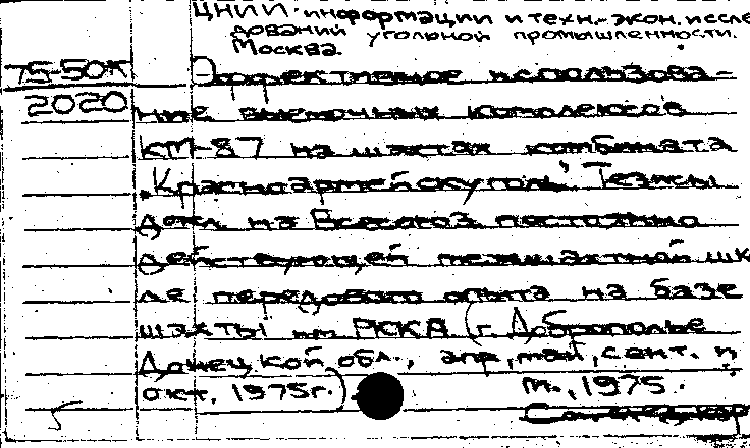 ЦНИИ информации и техн.-экон. иссле
дований угольной промышленности.
Москва.
75-50К Эффективное использова-
2020 ние выемочных комплексов
КМ-87 на шахтах комбината
„Красноармейскуголь“ Тезисы
докл. на Всесоюз. постоянно
действующей межшахтной шк
ле передового опыта на базе
шахты им. РККА (г. Доброполье
Донецкой обл., апр, май, сент. и
окт. 1975г.) М., 1975.
5